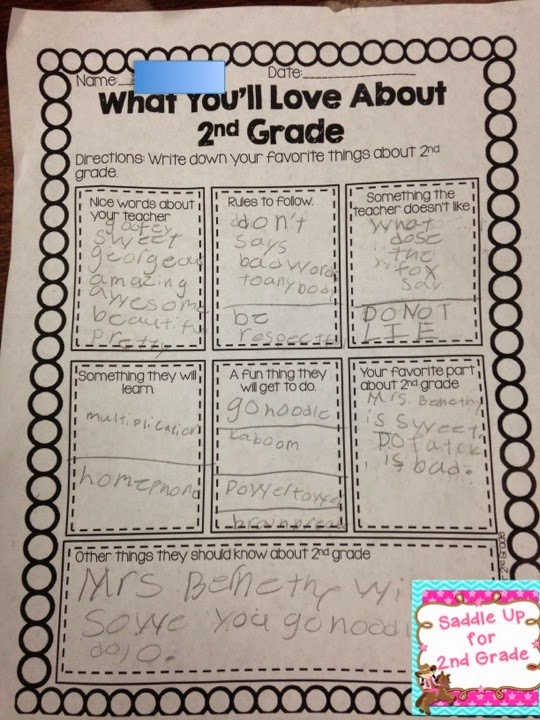 Name: Date:
What You'll Love About
2nd Grade
Directions: Write down your favorite things about 2nd
grade.
Nice words about
your teacher
gofey
sweet
georgeous
amazing
awesome
beautiful
pretty
Rules to follow.
don't
says
bad words
to any body
be
respectful
Something the
teacher doesn't like
What
dose
the
fox
say
DO NOT
LIE
Something they will
learn.
multiplication
homephond
A fun thing they
will get to do.
gonoodle
kaboom
powertower
brainbreak
Your favorite part
about 2nd grade
Mrs. Bemethy
is sweet.
is bad.
Other things they should know about 2nd grade
Mrs Bemethy wi
sowe you gonoodl
dojo.
2nd Grade
Saddle Up
for
2nd Grade